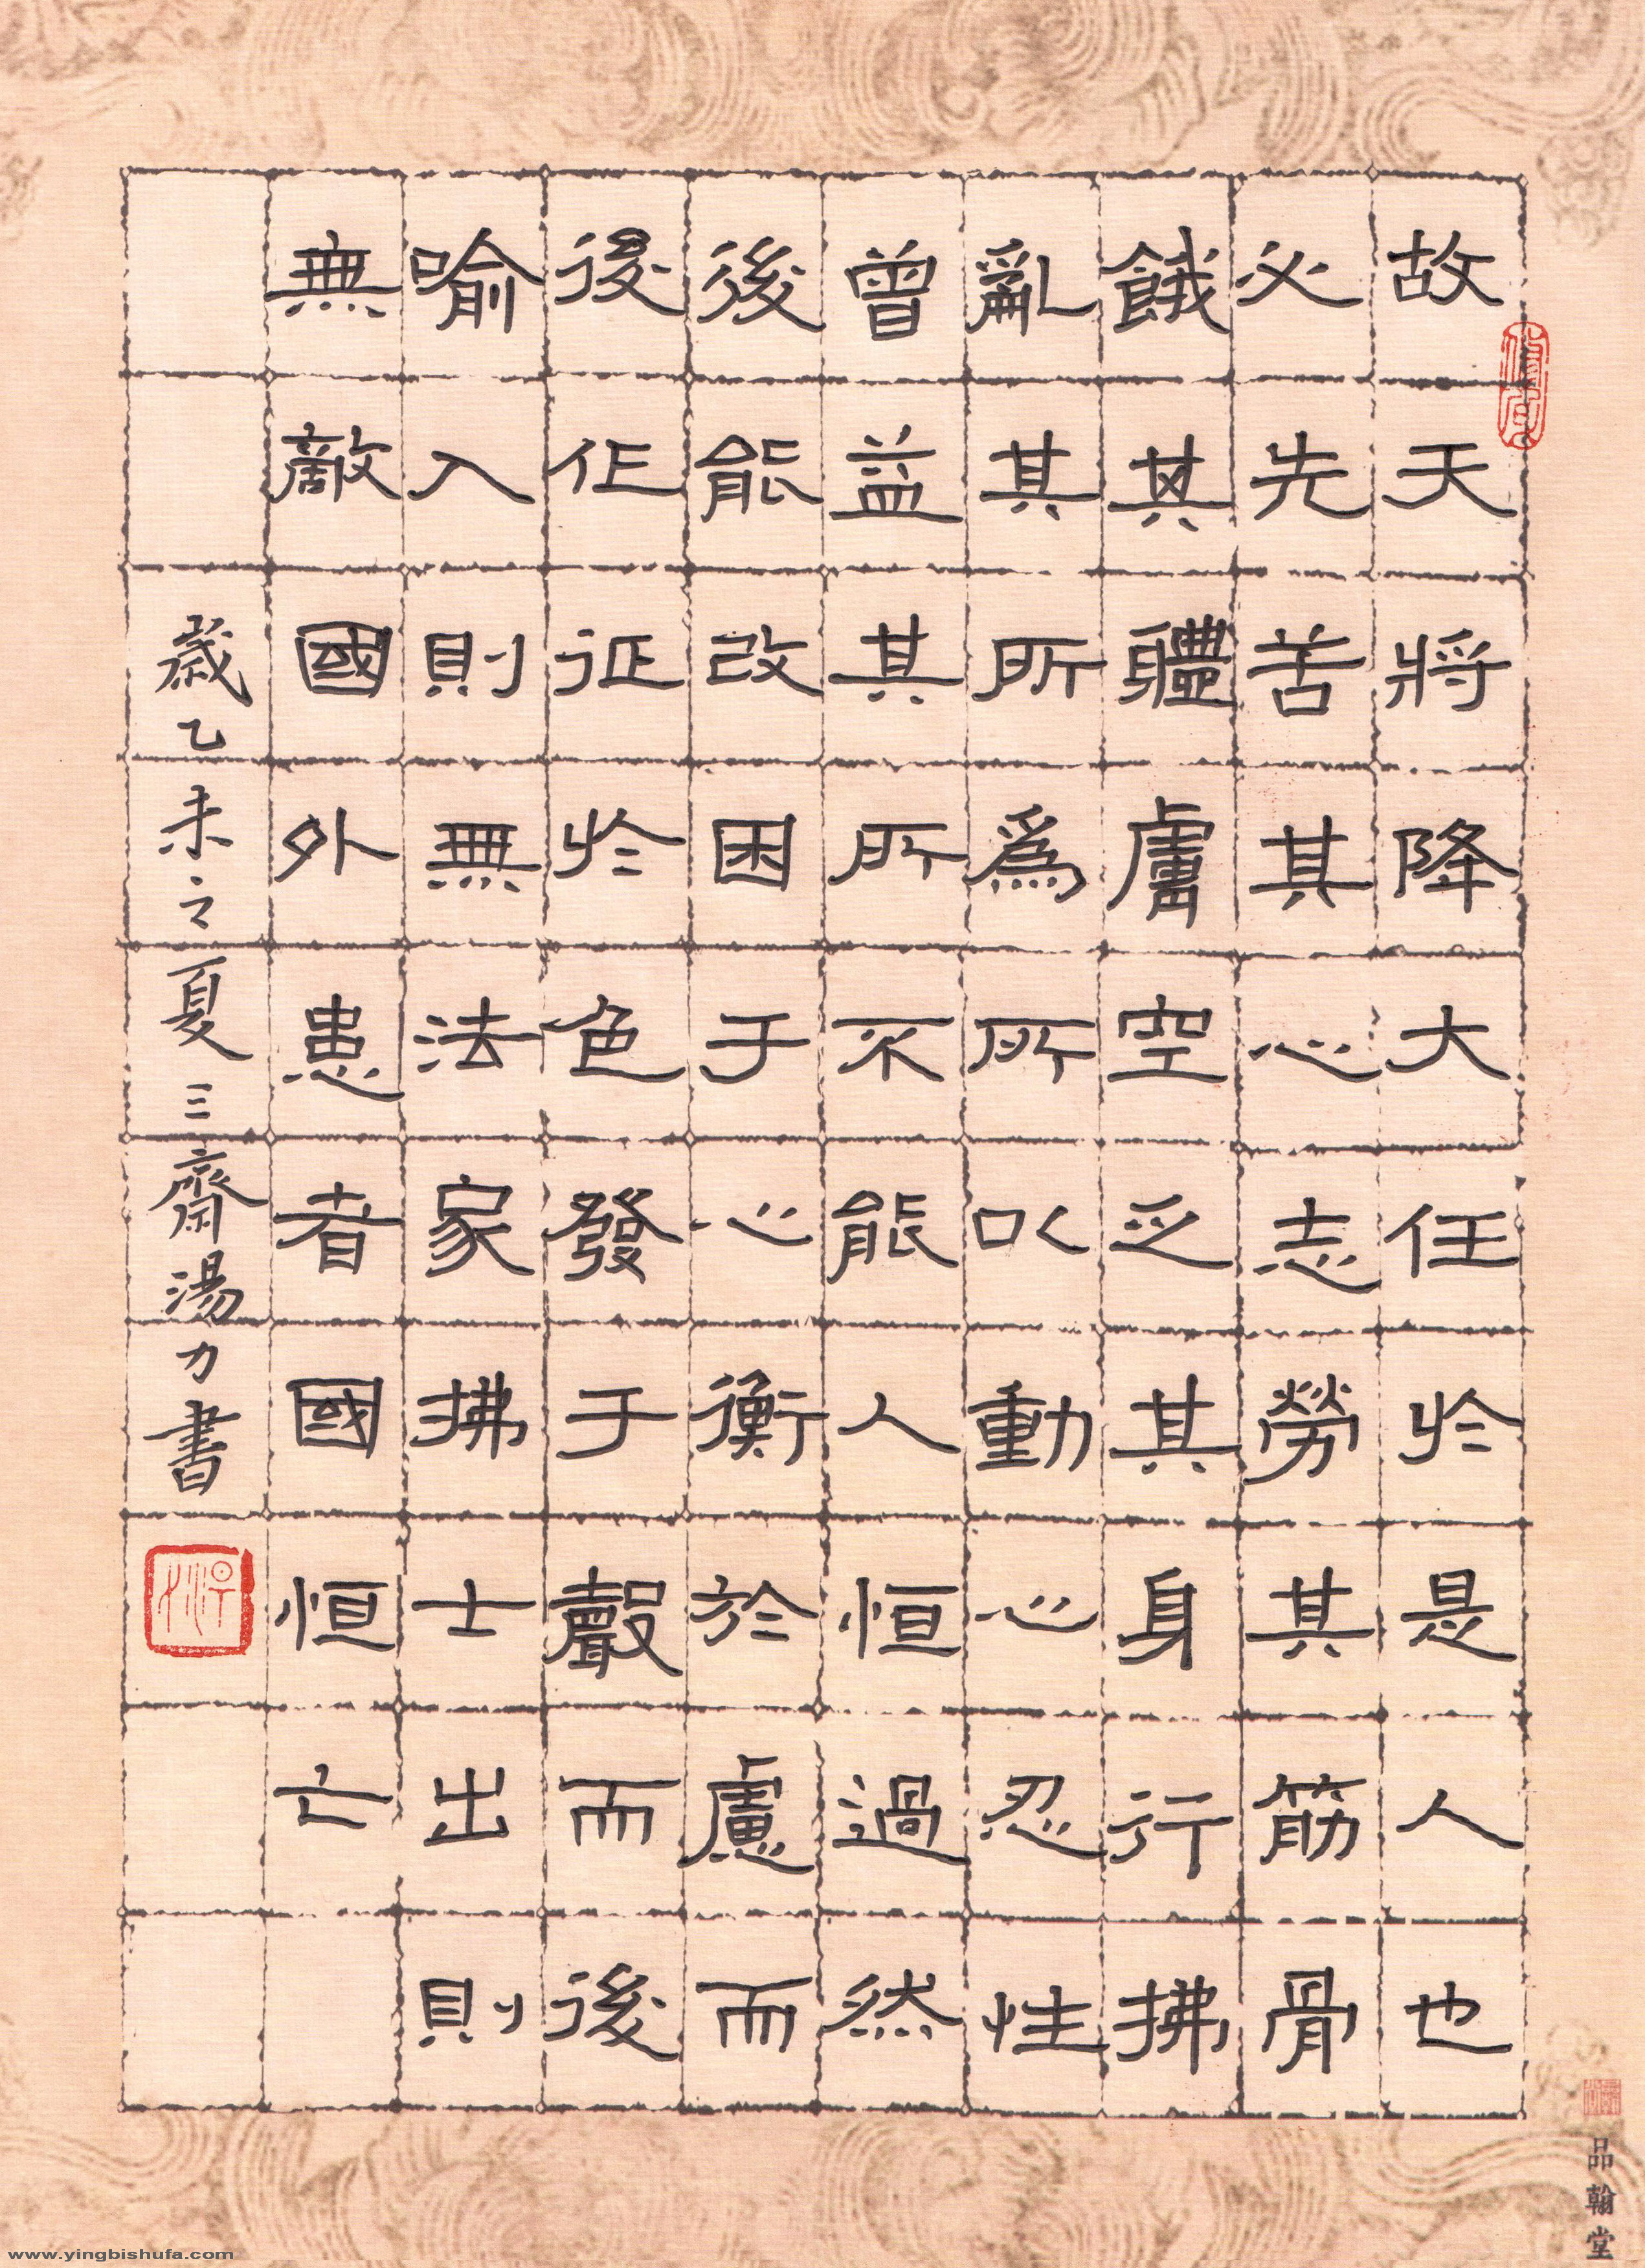 故天將降大任於是人也
必先苦其心志勞其筋骨
餓其體膚空乏其身行拂
亂其所爲所以動心忍性
曾益其所不能人恒過然
後能改困于心衡於慮而
後作征於色發于聲而後
喻入則無法家拂士出則
無敵國外患者國恒亡
歲乙未之夏三齋湯力書
品翰堂
www.yingbishufa.com